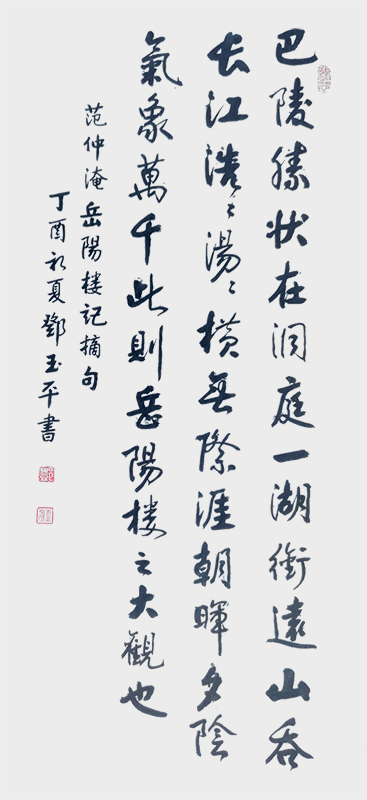 巴陵勝状在洞庭一湖銜遠山吞
长江浩〻湯〻横無際涯朝暉夕陰
氣象萬千此則岳陽楼之大觀也
范仲淹岳陽楼記摘句
丁酉初夏鄧玉平書